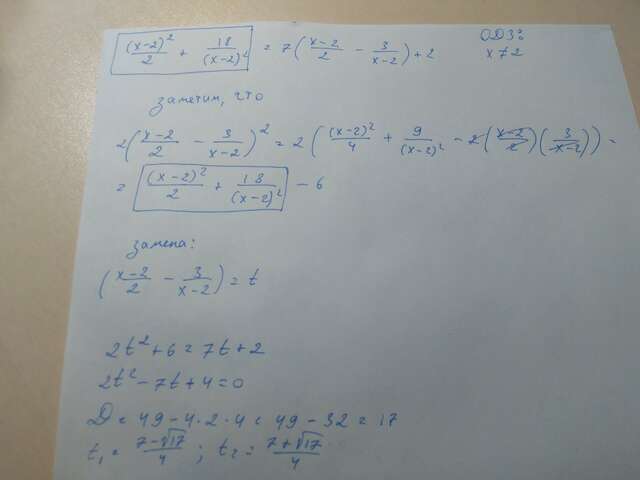 (x-2)²/2 + 18/(x-2)² = 7((x-2)/2 - 3/(x-2)) + 2
ОДЗ:
x≠2
заметим, что
2((x-2)/2 - 3/(x-2))² = 2((x-2)²/4 + 9/(x-2)² - 2((x-2)/2)(3/(x-2))) =
= (x-2)²/2 + 18/(x-2)² - 6
замена:
((x-2)/2 - 3/(x-2)) = t
2t²+6=7t+2
2t²-7t+4=0
D = 49-4·2·4 = 49-32=17
t₁ = (7-√17)/4 ; t₂ = (7+√17)/4